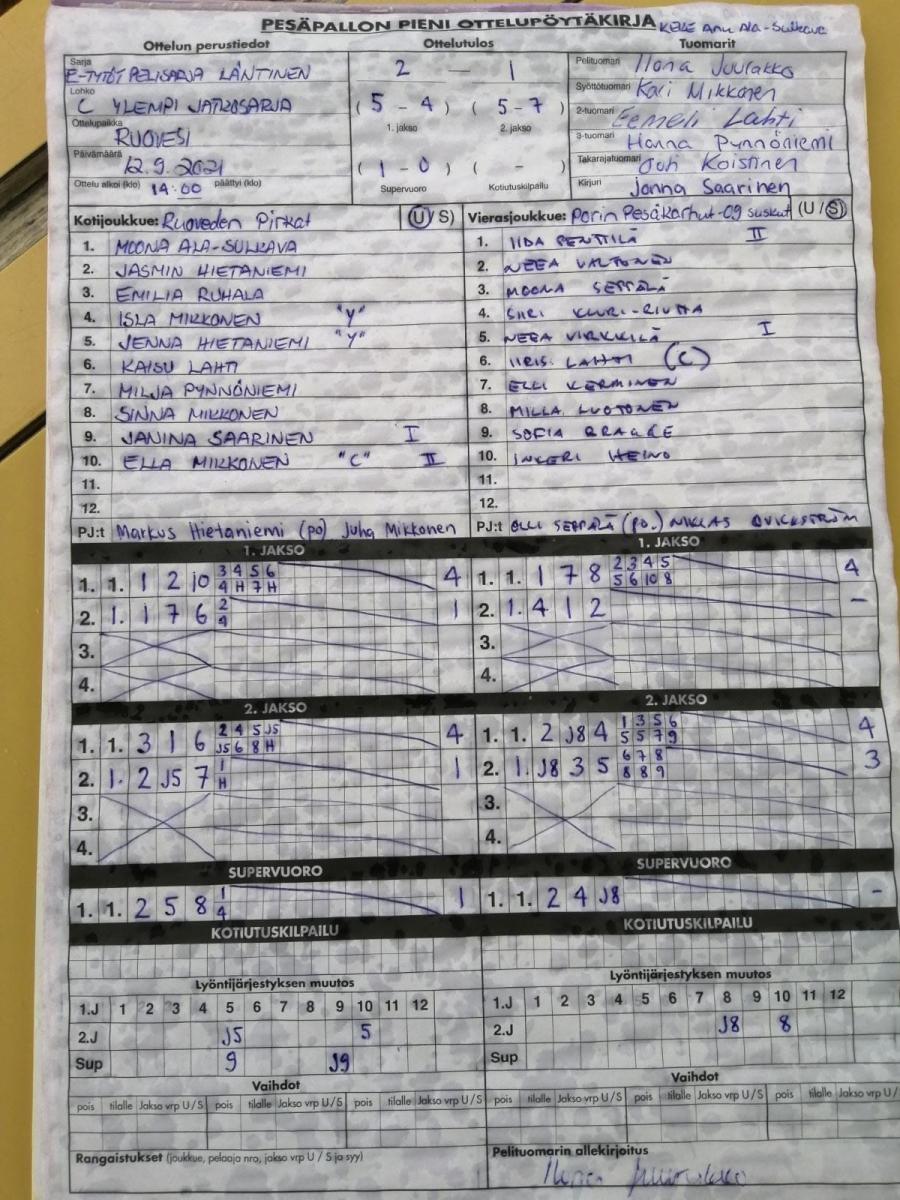 PESÄPALLON PIENI OTTELUPÖYTÄKIRJA
Ottelun perustiedot
Sarja
E-TYTÖT PELISARJA LÄNTINEN
Lohko
C YLEMPI JATKOSARJA
Ottelupaikka
RUOVESI
Päivämäärä
12.9.2021
Ottelu alkoi (klo) 14:00 päättyi (klo)
Ottelutulos
2 — 1
(5 - 4) (5-7)
1. jakso 2. jakso
(1 - 0) ( - )
Supervuoro Kotiutuskilpailu
Tuomarit
Pelituomari Ilona Juurakko
Syöttötuomari Kari Mikkonen
2-tuomari Eemeli Lahti
3-tuomari Hanna Pynnöniemi
Takarajatuomari Outi Koistinen
Kirjuri Janna Saarinen
Kotijoukkue: Ruoveden Pirkat (U/S)
1. MOONA ALA-SULKAVA
2. JASMIN HIETANIEMI
3. EMILIA RUHALA
4. ISLA MIKKONEN "Y"
5. JENNA HIETANIEMI "Y"
6. KAISU LAHTI
7. MILJA PYNNÖNIEMI
8. SINNA MIKKONEN
9. JANINA SAARINEN I
10. ELLA MIKKONEN "C" II
11.
12.
PJ:t Markus Hietaniemi (po) Juha Mikkonen
Vierasjoukkue: Porin Pesäkarhut-09 suskut (U/S)
1. IIDA PENTTILÄ II
2. NEEA VALTONEN
3. MOONA SEPPÄLÄ
4. SIIRI
5. NEEA VIRKKILÄ I
6. IIRIS LAHTI (C)
7. ELLI KERMINEN
8. MILLA LUOTONEN
9. SOFIA
10. INKERI HEINO
11.
12.
PJ:t OLLI SEPPÄLÄ (po.) NIKLAS QVICKSTRÖM
1. JAKSO
1. 1. 1 2 10 3 4 5 6 4
4 H 7 H
2. 1. 1 7 6 2 1
4
3.
4.
1. JAKSO
1. 1. 1 7 8 2 3 4 5 4
5 6 10 8
2. 1. 4 1 2 -
3.
4.
2. JAKSO
1. 1. 3 1 6 2 4 5 J5 4
J5 6 8 H
2. 1. 2 J5 7 1 1
H
3.
4.
2. JAKSO
1. 1. 2 J8 4 1 3 5 6 4
5 5 7 9
2. 1. J8 3 5 6 7 8 3
8 8 9
3.
4.
SUPERVUORO
1. 1. 2 5 8 1 1
4
SUPERVUORO
1. 1. 2 4 J8 -
KOTIUTUSKILPAILU
KOTIUTUSKILPAILU
Lyöntijärjestyksen muutos
1.J 1 2 3 4 5 6 7 8 9 10 11 12
2.J J5 5
Sup 9 J9
Lyöntijärjestyksen muutos
1.J 1 2 3 4 5 6 7 8 9 10 11 12
2.J J8 8
Sup
Vaihdot
pois tilalle Jakso vrp U/S pois tilalle Jakso vrp U/S pois tilalle Jakso vrp U/S
Vaihdot
pois tilalle Jakso vrp U/S pois tilalle Jakso vrp U/S pois tilalle Jakso vrp U/
Rangaistukset (joukkue, pelaaja nro, jakso vrp U / S ja syy)
Pelituomarin allekirjoitus